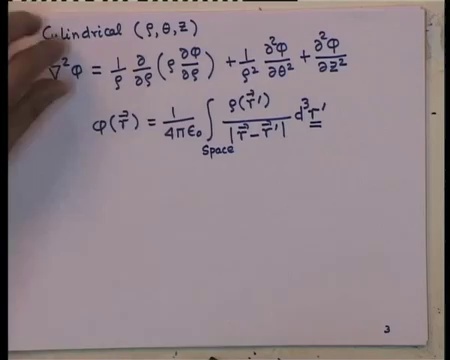 Cylindrical (ρ, θ, z)
∇²φ = 1/ρ ∂/∂ρ (ρ ∂φ/∂ρ) + 1/ρ² ∂²φ/∂θ² + ∂²φ/∂z²
φ(r⃗) = 1/4πϵ₀ ∫ ρ(r⃗′)/|r⃗ − r⃗′| d³r′
Space
3